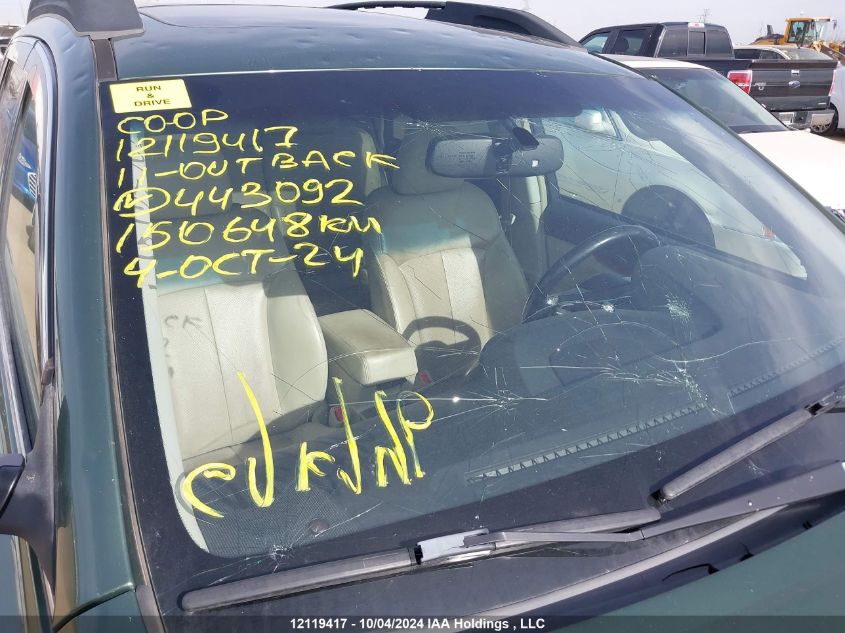 RUN
&
DRIVE
CO-OP
12119417
11-OUTBACK
443092
150648KM
4-OCT-24
12119417 - 10/04/2024 IAA Holdings , LLC